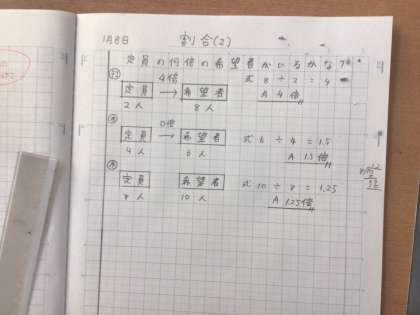 1月8日 割合(2)
定員の何倍の希望者がいるかな?
4倍 式 8÷2=4
定員 → 希望者 A 4倍
2人 8人
0倍
定員 → 希望者 式 6÷4=1.5
4人 6人 A 1.5倍
定員 希望者 式 10÷8=1.25
8人 10人 A 1.25倍